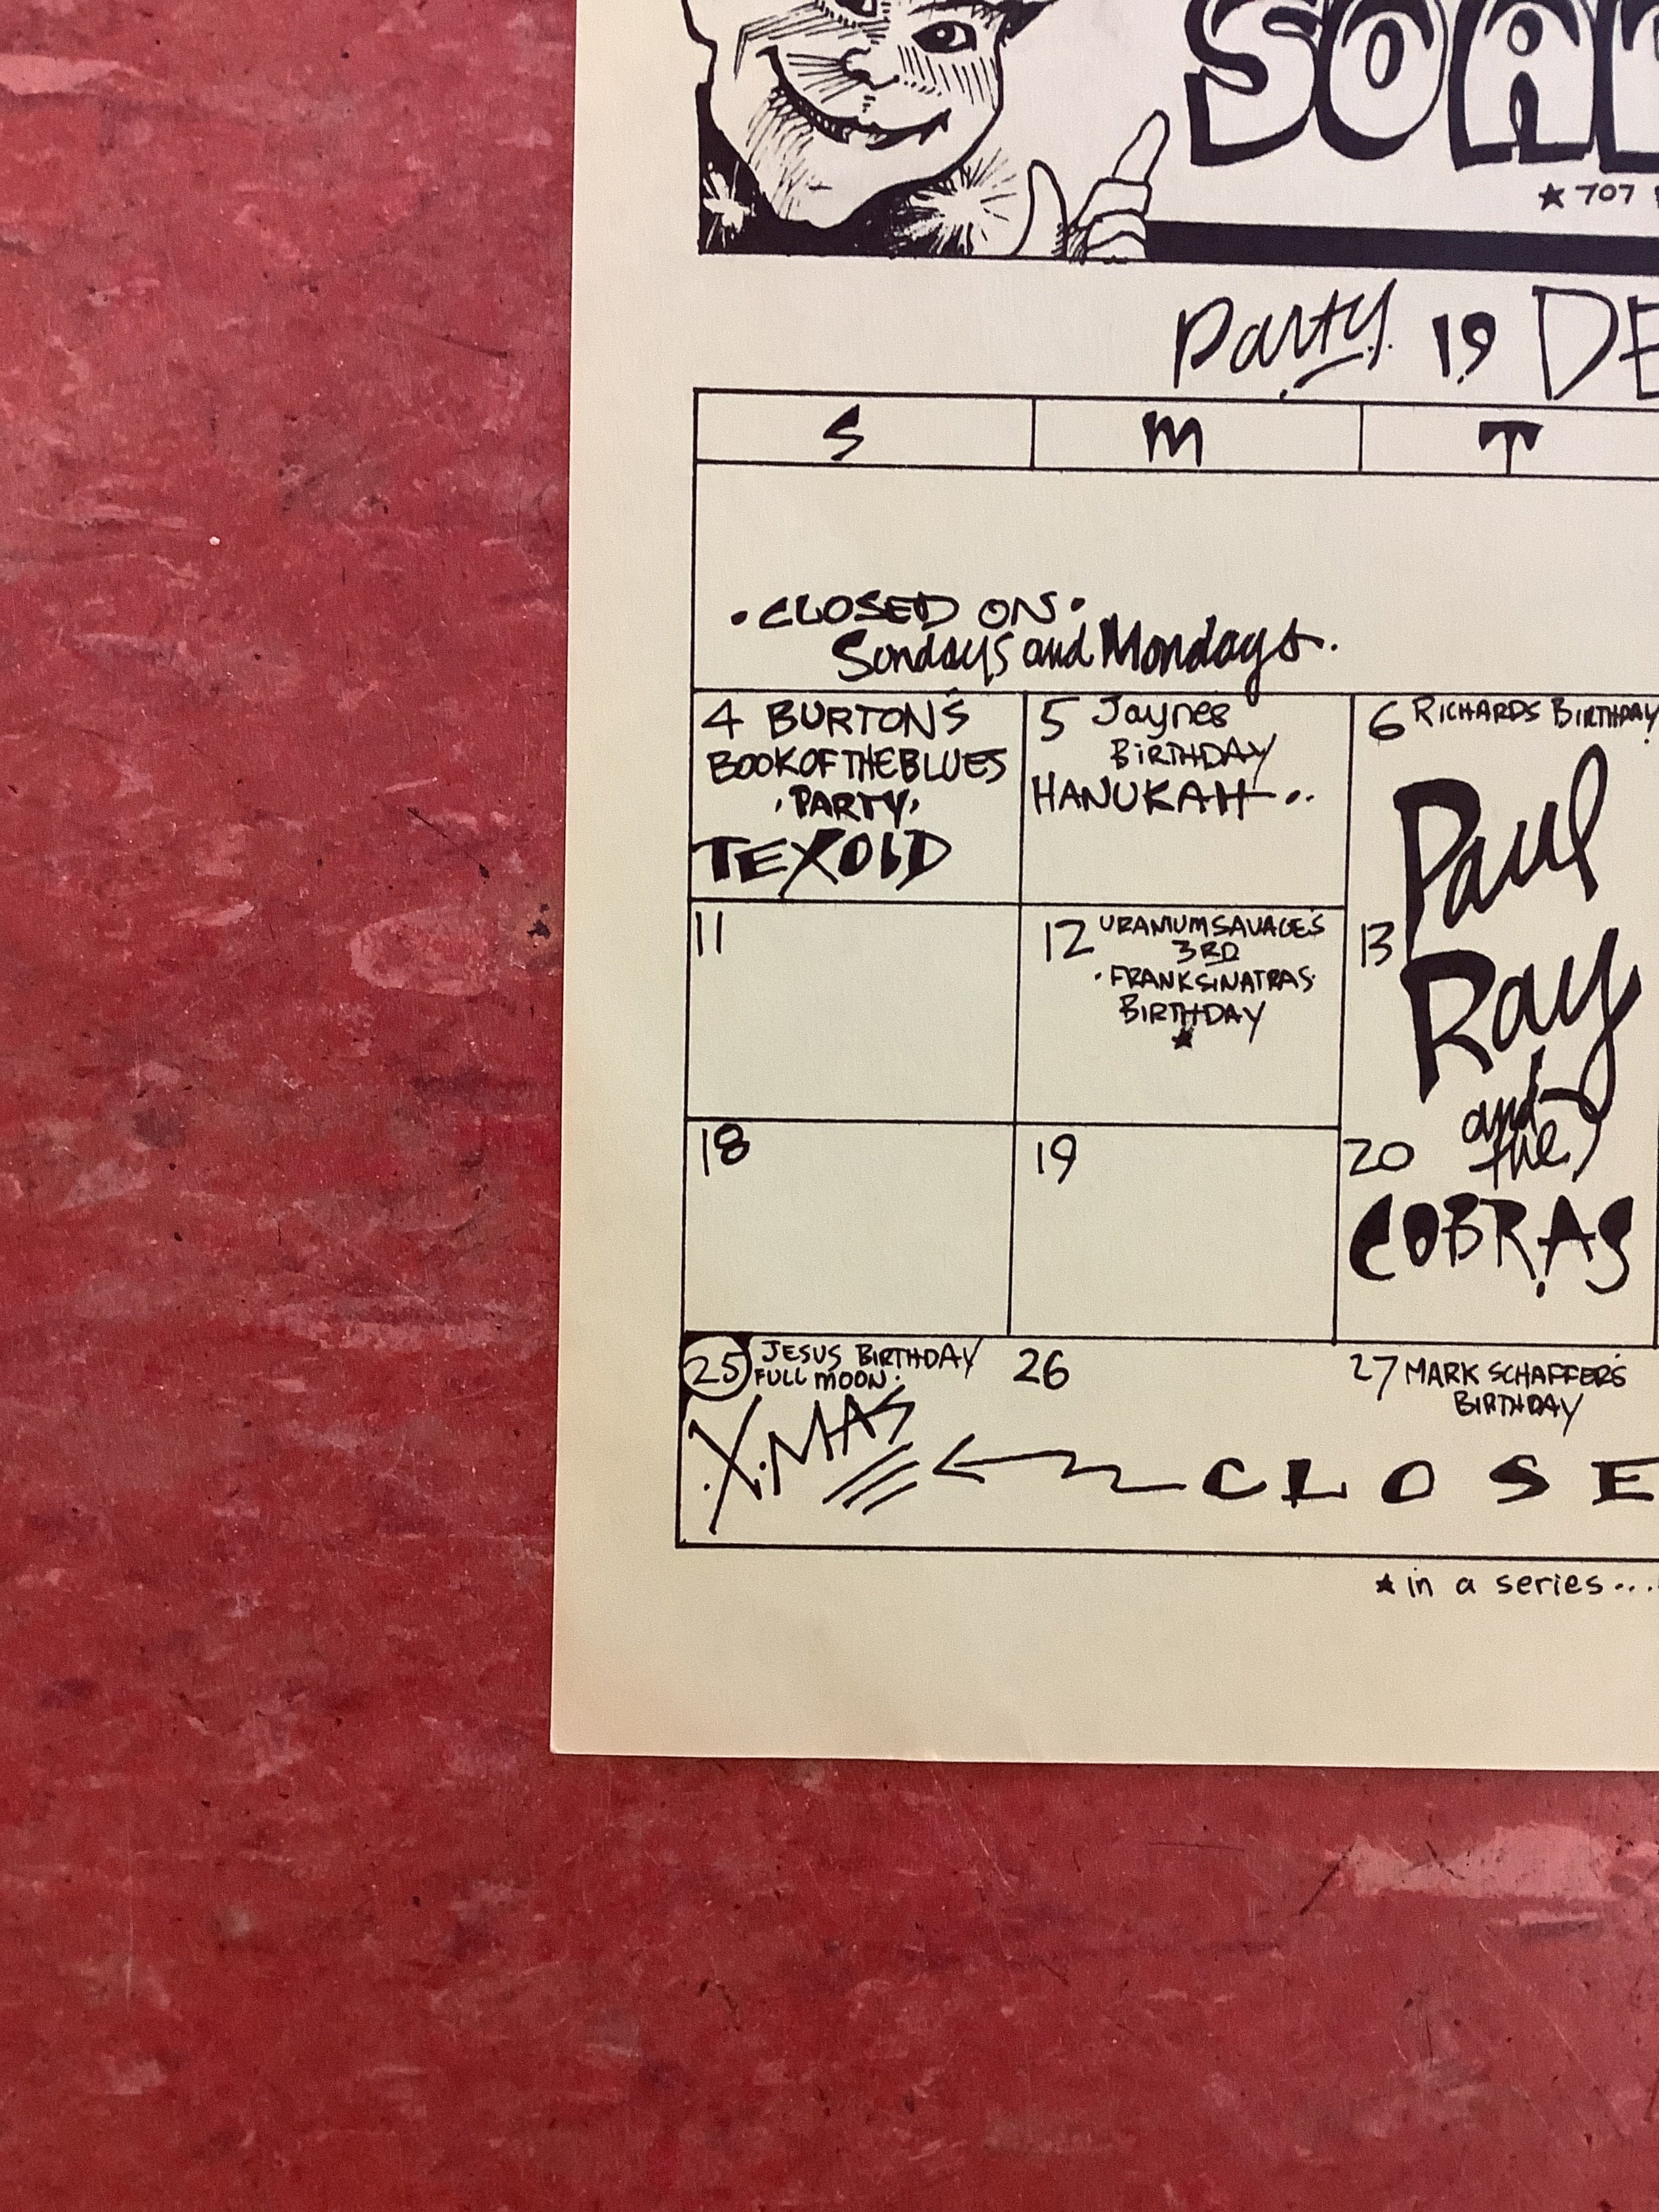 SOAP
★ 707
Party 19 DE
S M T
• CLOSED ON •
Sundays and Mondays.
4 BURTON'S
BOOK OF THE BLUES
• PARTY •
TEXOID
5 Jaynes
BIRTHDAY
HANUKAH..
6 RICHARDS BIRTHDAY
Paul
Ray
and
the
COBRAS
11
12 URANIUM SAVAGE'S
3RD
• FRANK SINATRAS
BIRTHDAY
★
13
18
19
20
25 JESUS BIRTHDAY
FULL MOON.
X.MAS
26
27 MARK SCHAFFER'S
BIRTHDAY
CLOSE
★ in a series...